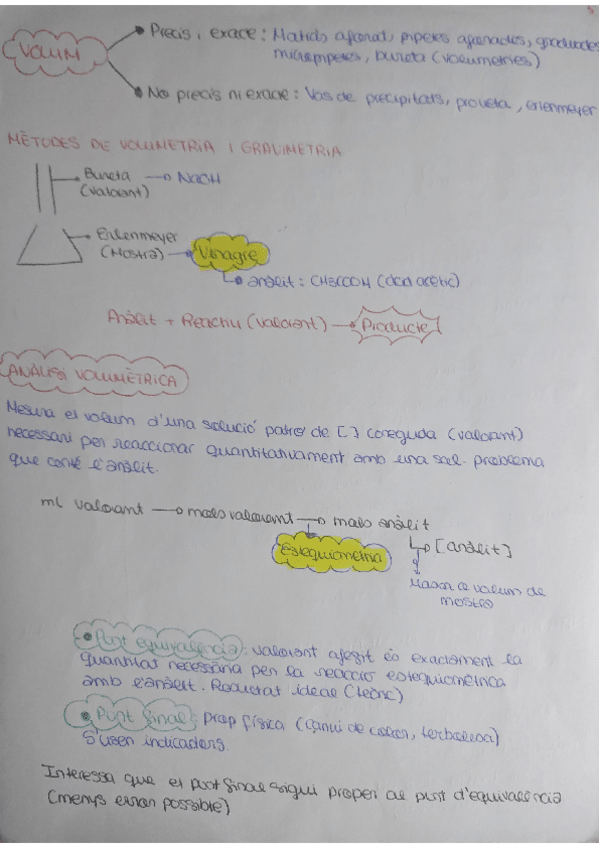 VOLUM
Precís i exacte: Matràs aforat, pipetes aforades, graduades
micropipetes, bureta (volumetries)
No precís ni exacte: Vas de precipitats, proveta, erlenmeyer
MÈTODES DE VOLUMETRIA I GRAVIMETRIA
Bureta → NaOH
(valorant)
Erlenmeyer
(Mostra) → Vinagre
anàlit: CH3COOH (àcid acètic)
Anàlit + Reactiu (valorant) → Producte
ANÀLISI VOLUMÈTRICA
Mesura el volum d'una solució patró de [ ] coneguda (valorant)
necessari per reaccionar quantitativament amb una sol. problema
que conté l'anàlit.
ml valorant → mols valorant → mols anàlit
Estequiometria
[anàlit]
Massa o volum de
mostra
Punt equivalència: valorant afegit és exactament la
quantitat necessària per la reacció estequiomètrica
amb l'anàlit. Resultat ideal (teòric)
Punt final: prop física (canvi de color, terbolesa)
S'usen indicadors.
Interessa que el punt final sigui proper al punt d'equivalència
(menys error possible)